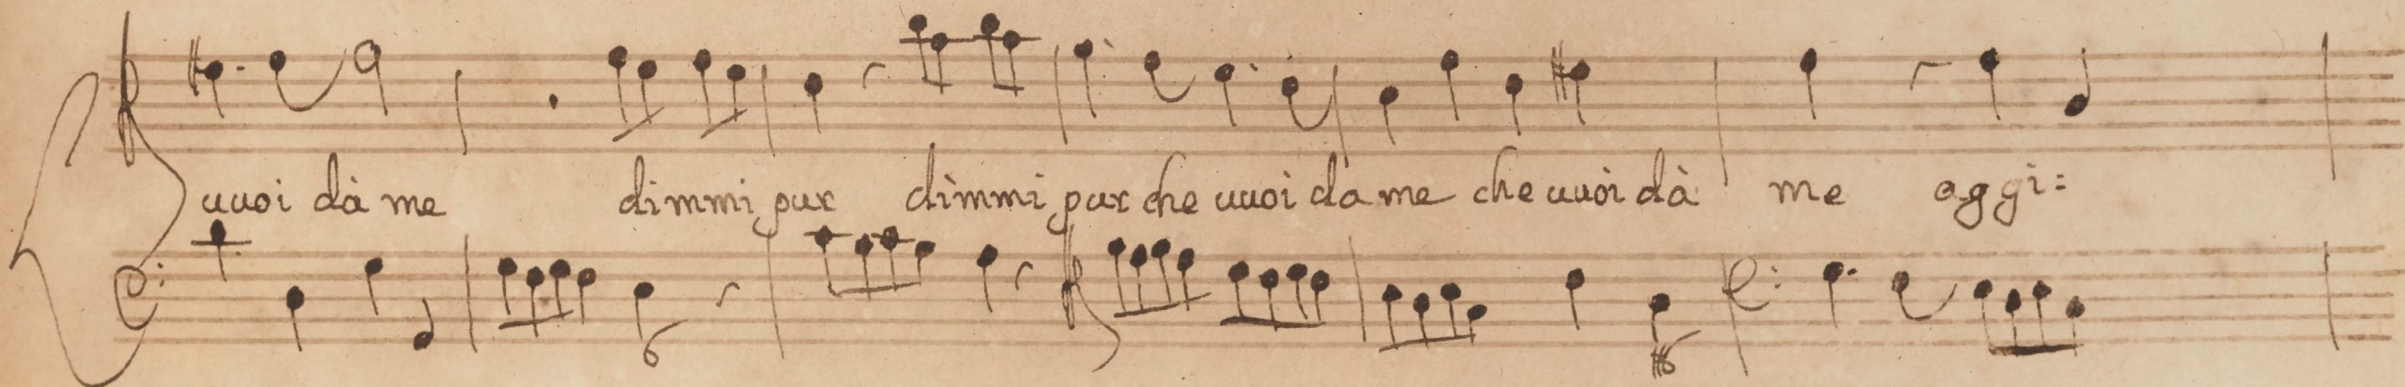 uuoi dà me dimmi pur dimmi pur che uuoi da me che uuoi dà me aggi=
6
#6